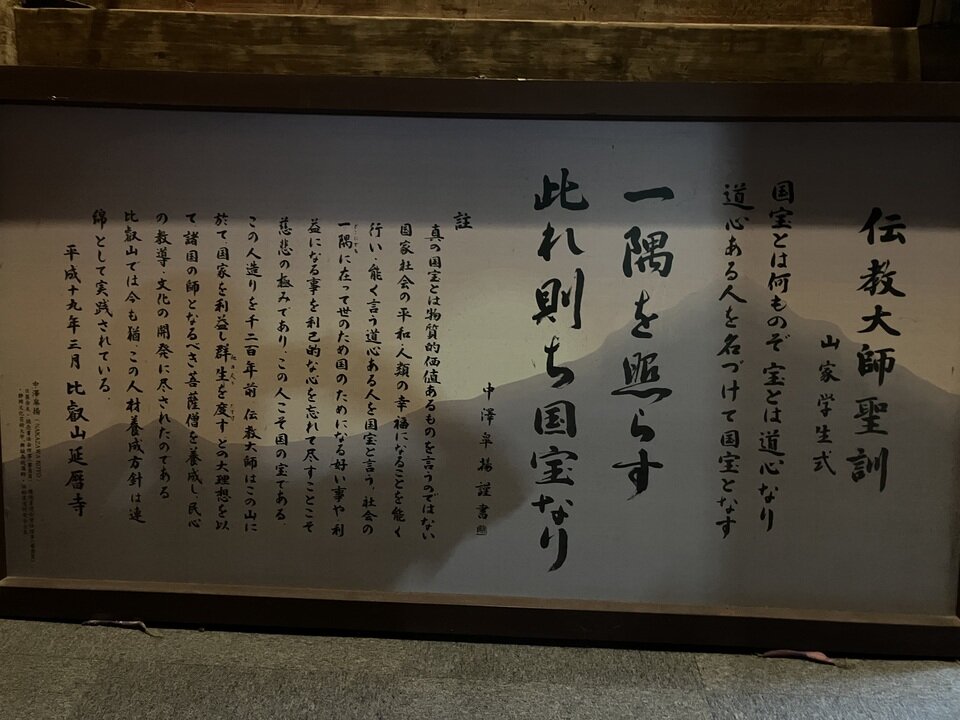 伝教大師聖訓
山家学生式
国宝とは何ものぞ 宝とは道心なり
道心ある人を名づけて国宝となす
一隅を照らす
此れ則ち国宝なり
中澤皐揚 謹書
註
真の国宝とは物質的価値あるものを言うのではない
国家社会の平和・人類の幸福になることを能く
行い・能く言う道心ある人を国宝と言う。社会の
一隅に在って世のため国のためになる好い事や利
益になる事を利己的な心を忘れて尽すことこそ
慈悲の極みであり・この人こそ国の宝である
この人造りを千二百年前 伝教大師はこの山に
於て、国家を利益し群生を度すとの大理想を以
て諸国の師となるべき菩薩僧を養成し、民心
の教導・文化の開発に尽されたのである
比叡山では今も猶、この人材養成方針は連
綿として実践されている。
平成十九年三月 比叡山延暦寺